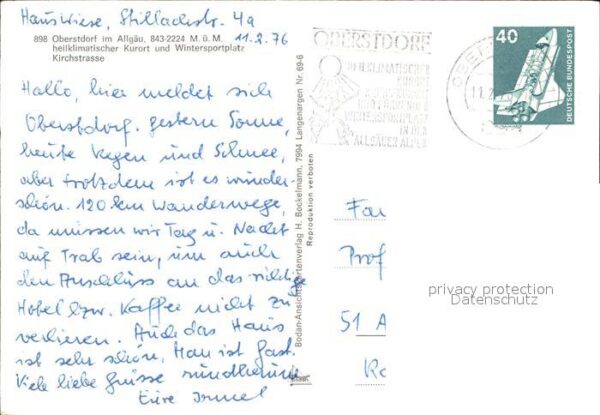 Haus Wiese, Stillachstr. 4a
11.2.76
898 Oberstdorf im Allgäu, 843-2224 M. ü. M.
heilklimatischer Kurort und Wintersportplatz
Kirchstrasse
Hallo, hier meldet sich
Oberstdorf. gestern Sonne,
heute Regen und Schnee,
aber trotzdem ist es wunder-
schön. 120 km Wanderwege,
da müssen wir Tag u. Nacht
auf Trab sein, um auch
den Anschluss an das richtige
Hobel bzw. Kaffee nicht zu
verlieren. Auch das Haus
ist sehr schön. Man ist Gast.
Viele liebe Grüsse rundherum
Eure Irmel
Bodan-Ansichtskartenverlag H. Bockelmann, 7994 Langenargen Nr. 69-6
Reproduktion verboten
OBERSTDORF
HEILKLIMATISCHER
KURORT
WINTERSPORTPLATZ
IN DEN
ALLGÄUER ALPEN
40
DEUTSCHE BUNDESPOST
Fa
Prof
51 A
privacy protection
Datenschutz